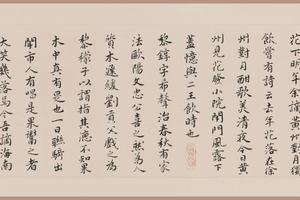 花下明年余謫黃州對月復
飲嘗有詩云去年花落在徐
州對月酣歌美清夜今日黃
州見花發小院閉門風露下
蓋憶與二王飲時也
黎錞字希聲治春秋有家
法歐陽文忠公喜之然為人
質木遲緩劉貢父戲之為
黎檬子以謂指其德不知果
木中真有是也一日聯騎出
聞市人有唱是果鬻之者
大笑幾落馬今吾謫海南